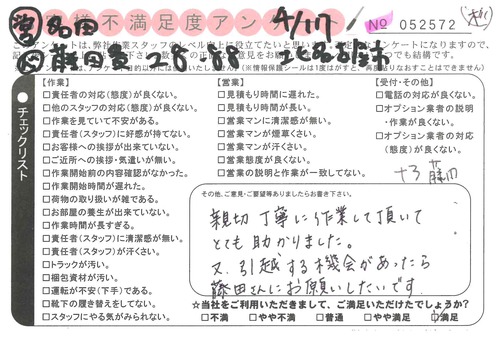 お客様不満足度アンケート
4/17
No 052572
このアンケートは、弊社作業スタッフのレベル向上に役立てたいと
藤田
【作業】
□責任者の対応(態度)が良くない。
□他のスタッフの対応(態度)が良くない。
□作業を見ていて不安がある。
□責任者(スタッフ)に好感が持てない。
□お客様への挨拶が出来ていない。
□ご近所への挨拶・気遣いが無い。
□作業開始前の内容確認がなかった。
□作業開始時間が遅れた。
□荷物の取り扱いが雑である。
□お部屋の養生が出来ていない。
□作業時間が長すぎる。
□責任者(スタッフ)に清潔感が無い。
□責任者(スタッフ)が汗くさい。
□トラックが汚い。
□梱包資材が汚い。
□運転が不安(下手)である。
□靴下の履き替えをしてない。
□スタッフにやる気がみられない。
【営業】
□見積もり時間に遅れた。
□見積もり時間が長い。
□営業マンに清潔感が無い。
□営業マンが煙草くさい。
□営業マンが汗くさい。
□営業態度が良くない。
□営業の説明と作業が一致してない。
【受付・その他】
□電話の対応が良くない。
□オプション業者の説明
・作業が良くない。
□オプション業者の対応
(態度)が良くない。
チェックリスト
その他、ご意見・ご要望等ありましたらお書き下さい。
親切丁寧に作業して頂いて
とても助かりました。
又、引越する機会があったら
藤田さんにお願いしたいです。
☆当社をご利用いただきまして、ご満足いただけたでしょうか?
□不満 □やや不満 □普通 □やや満足 □満足